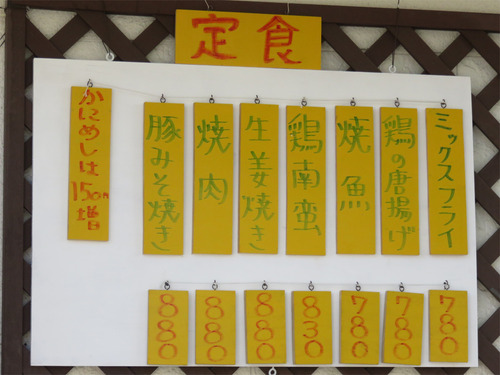 定食
ミックスフライ
鶏の唐揚げ
焼魚
鶏南蛮
生姜焼き
焼肉
豚みそ焼き
かにめしは150円増
780
780
780
830
880
880
880